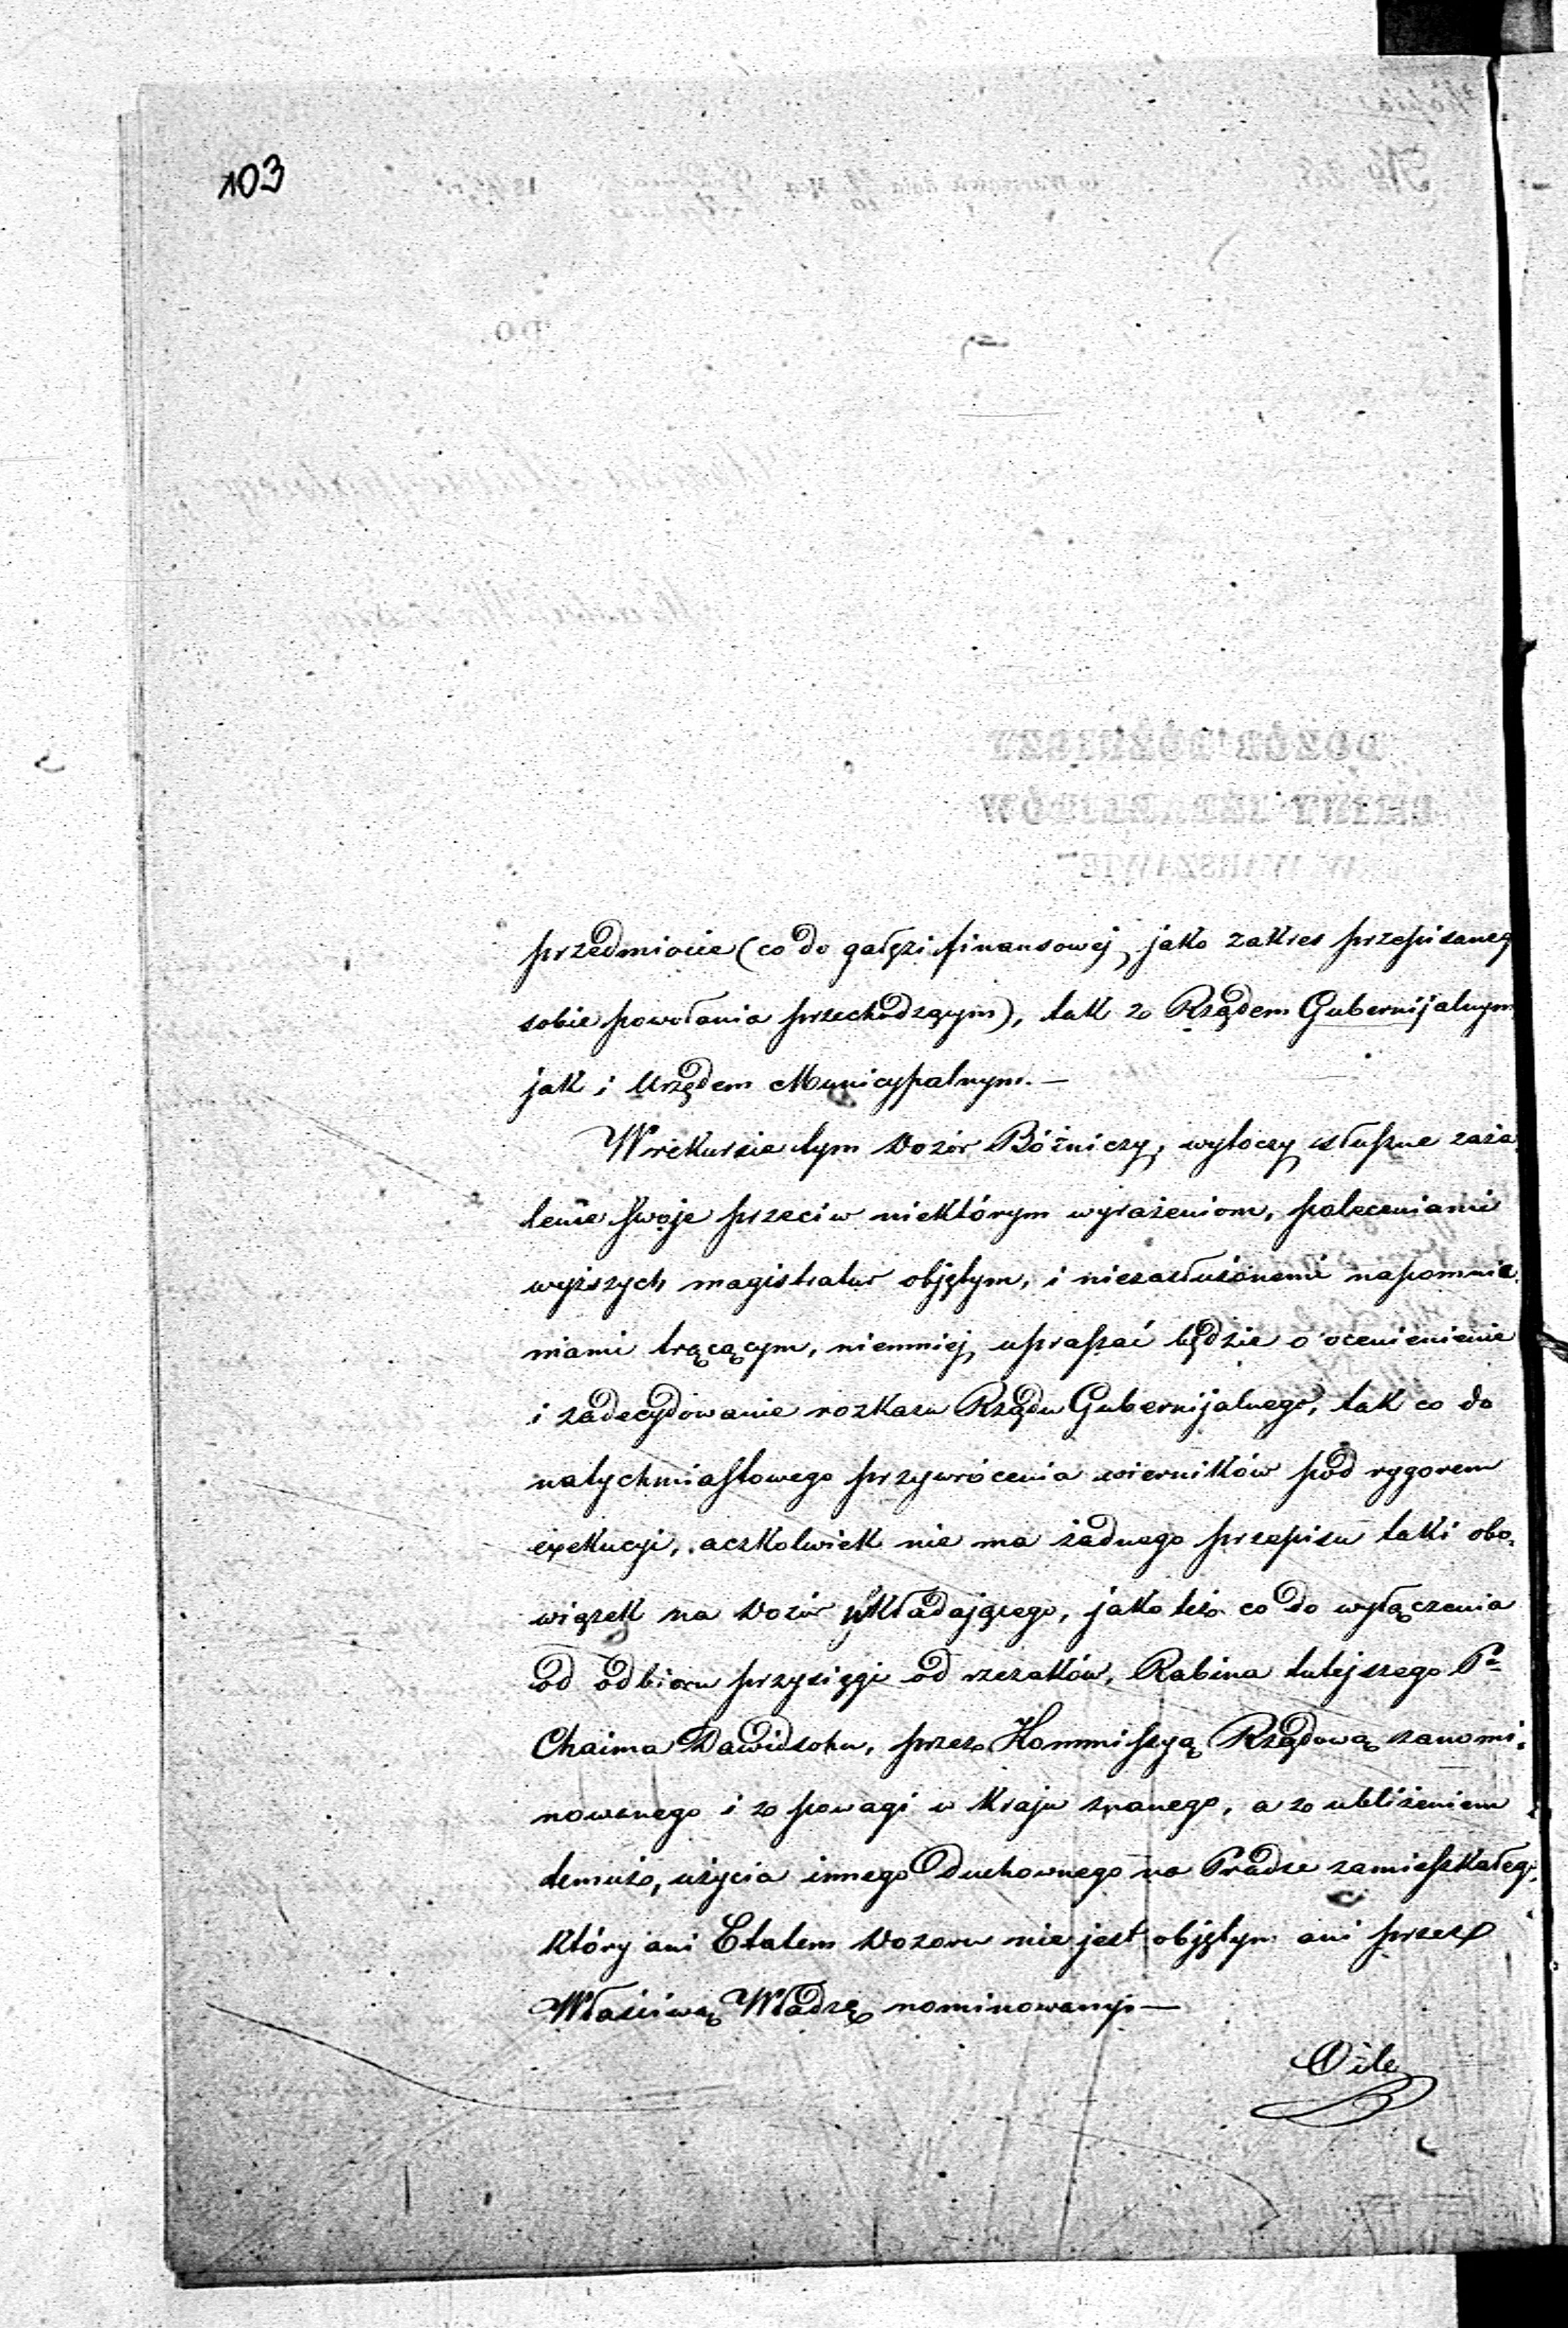 103
przedmiocie (co do gałęzi finansowej, jako zakres przepisaneg
sobie powołania przechodzącym), tak z Rządem Gubernijalnym
jak i Urzędem Municypalnym. —
W rekursie tym Dozór Bóżniczy, wytoczy słuszne zaża
lenie swoje przeciw niektórym wyrażeniom, poleceniami
wyższych magistratur objętym, i niezasłużonemi napomnie
niami trącącym, niemniej, upraszać będzie o ocenienienie
i zadecydowanie rozkazu Rządu Gubernijalnego, tak co do
natychmiastowego przywrócenia wierników pod rygorem
exekucyi, aczkolwiek nie ma żadnego przepisu taki obo-
wiązek na Dozór wkładającego, jako też co do wyłączenia
od odbioru przysięgi od rzezaków, Rabina tutejszego P.
Chaima Dawidsohn, przez Kommissyą Rządową zanomi-
nowanego i z powagi w Kraju znanego, a z ubliżeniem
temuż, użycia innego Duchownego na Pradze zamieszkałego,
który ani Etatem Dozoru nie jest objętym ani przez
Właściwą Władzę nominowany. —
O ile
DOZÓR BÓŻNICZY
GMINY IZRAELITÓW
W WARSZAWIE